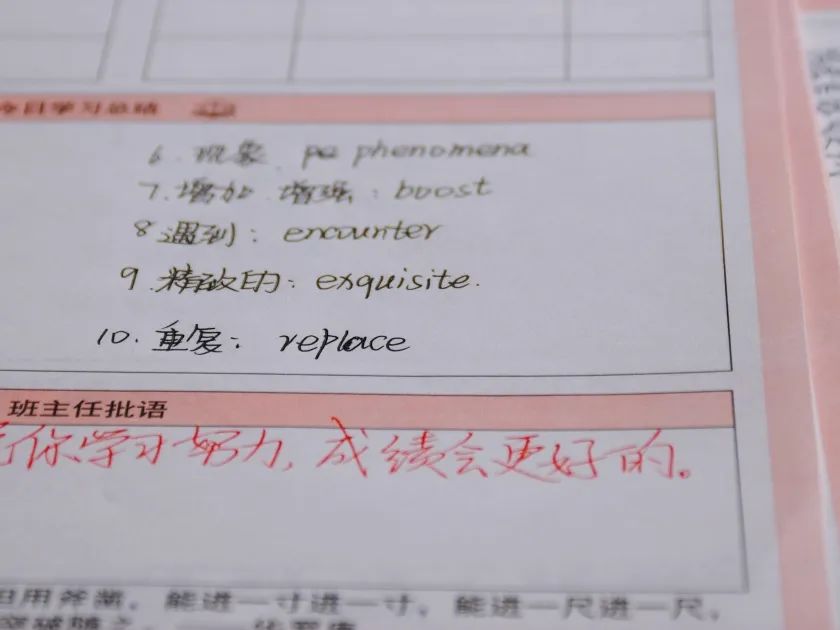 今日学习总结
6. 现象 pe phenomena
7. 增加 增强: boost
8 遇到: encounter
9. 精致的: exquisite.
10. 重复: replace
班主任批语
你学习努力, 成绩会更好的。
用斧凿, 能进一寸进一寸, 能进一尺进一尺,